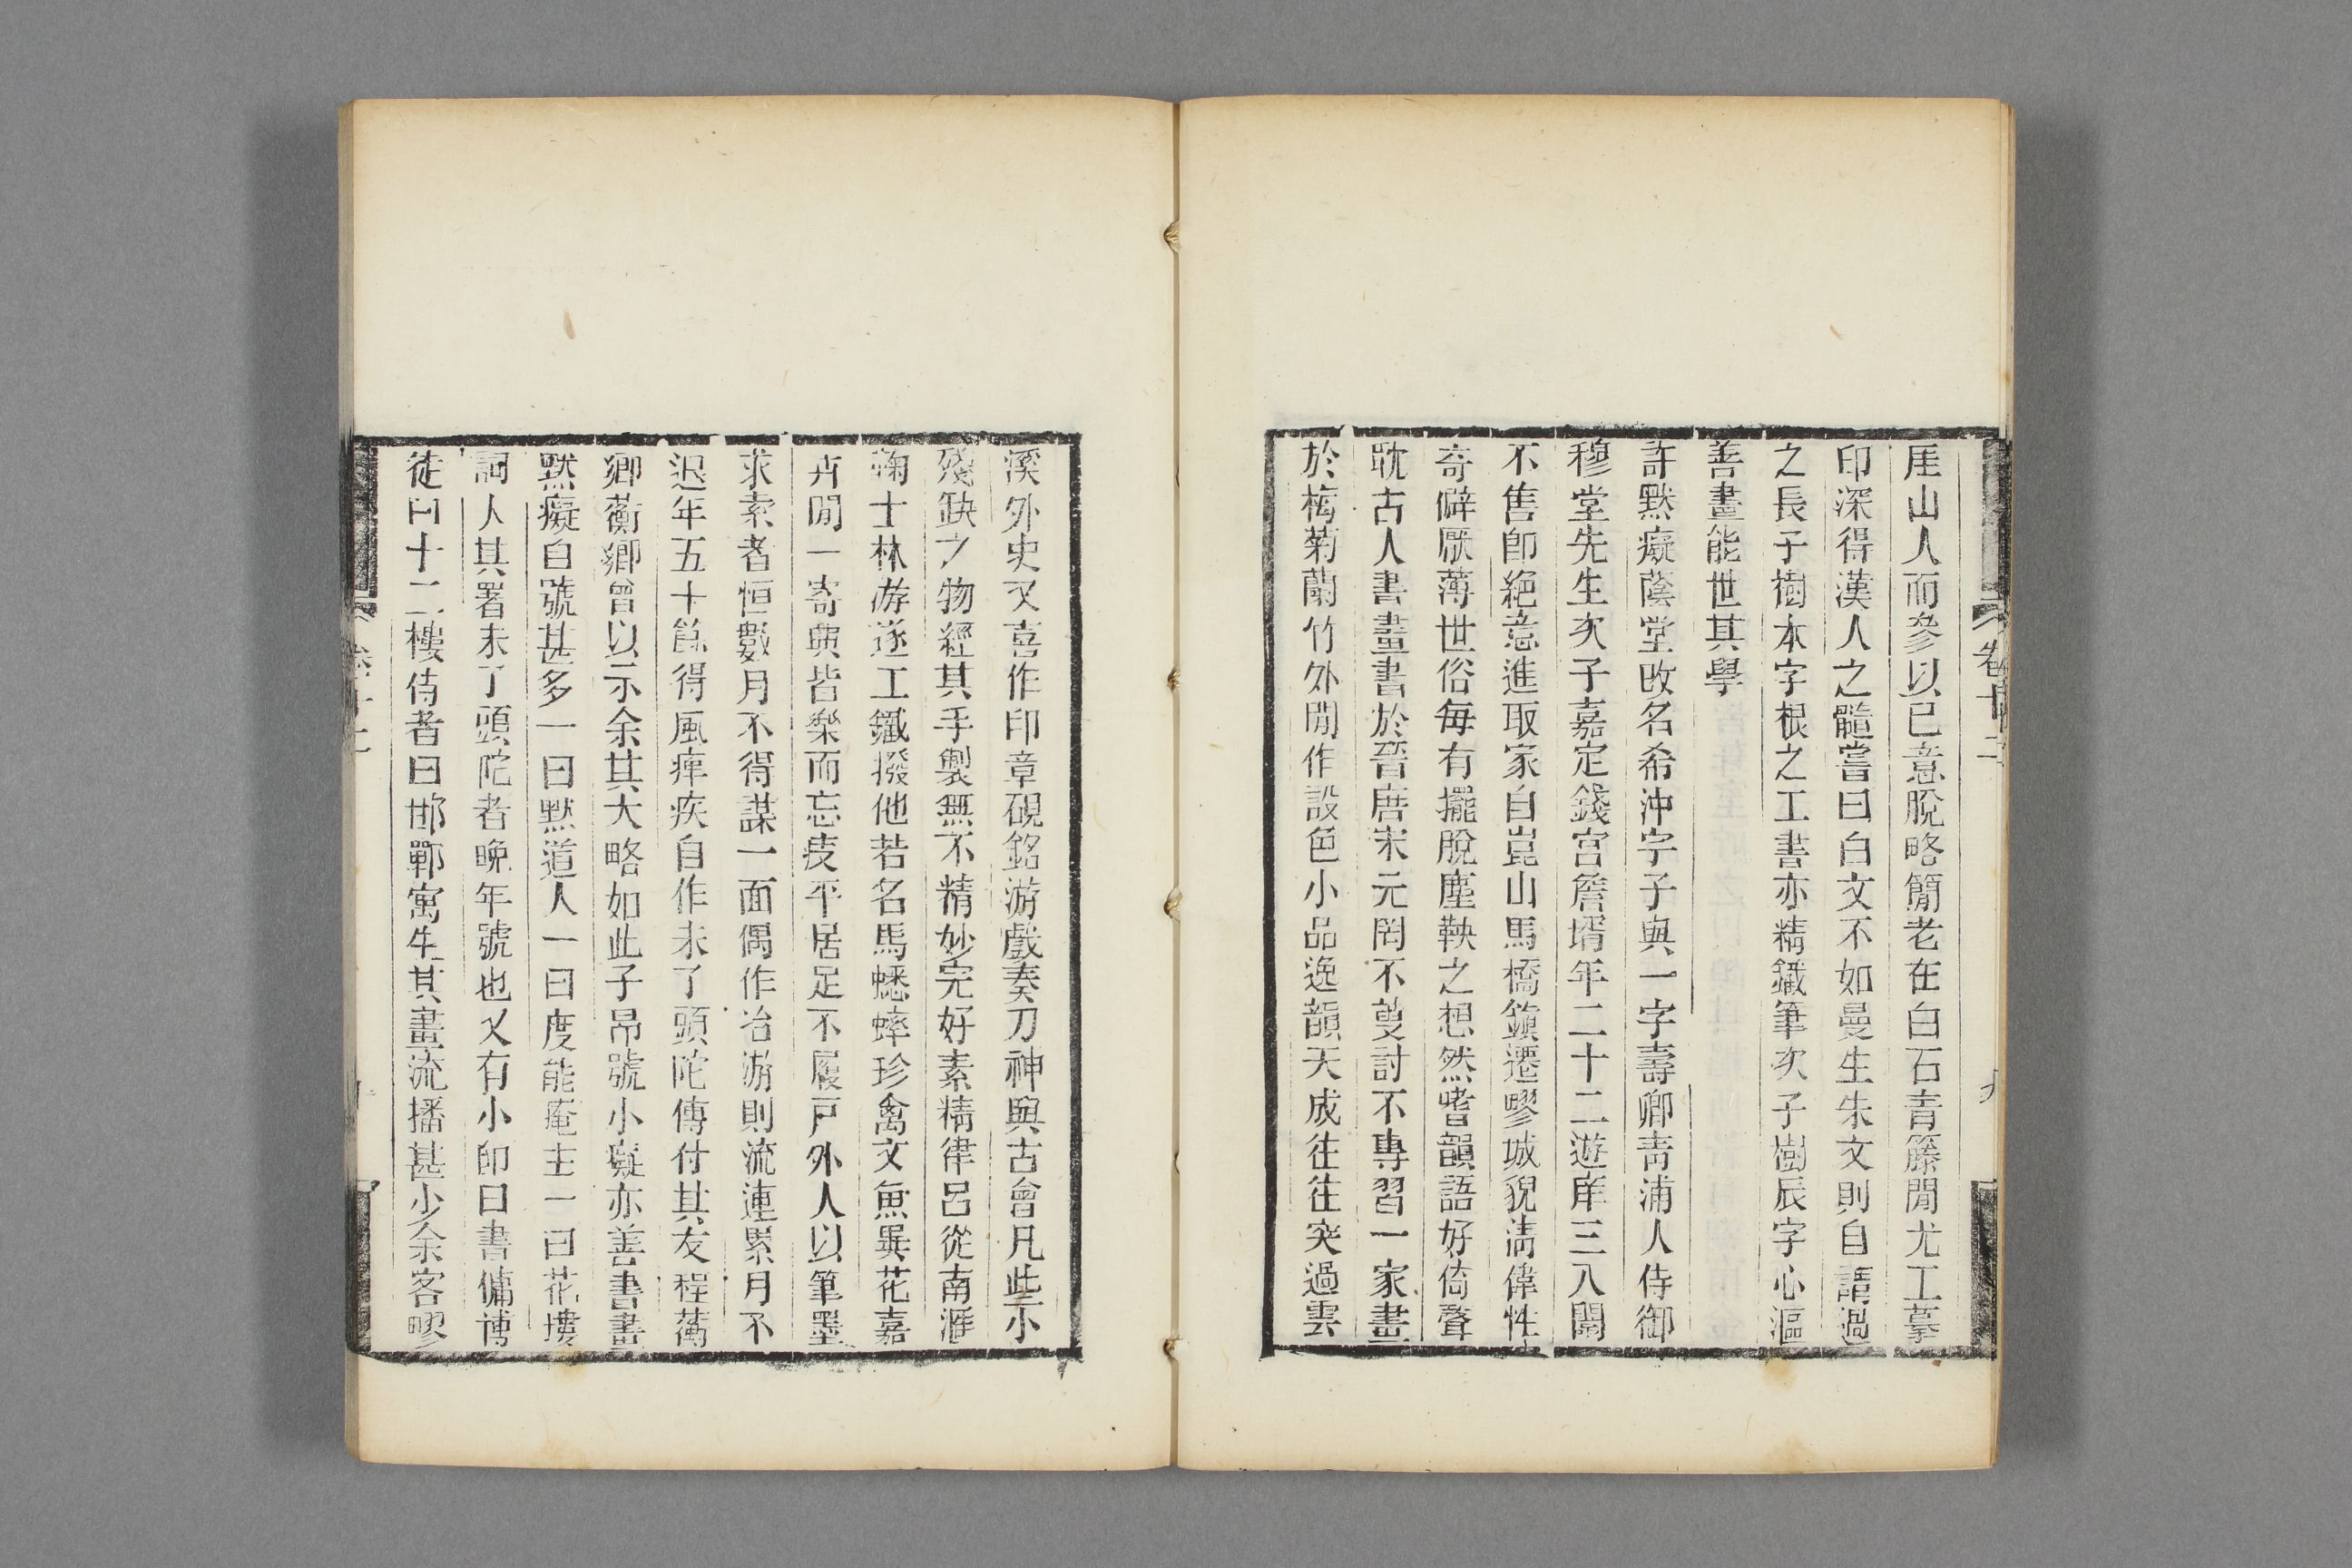 卷十二
九
厓山人而參以已意脫略簡老在白石青籐閒尤工摹
印深得漢人之髓嘗曰白文不如曼生朱文則自謂過
之長子樹本字根之工書亦精鐵筆次子樹辰字心漚
善畫能世其學
許默癡蔭堂攺名希沖字子與一字壽卿靑浦人侍御
穆堂先生次子嘉定錢宮詹壻年二十二遊庠三入闈
不售卽絶意進取家自崑山馬橋鎭遷疁城貌淸偉性
奇僻厭薄世俗每有擺脫塵鞅之想然嗜韻語好倚聲
耽古人書畫書於晉唐宋元罔不蒐討不專習一家畫
於梅菊蘭竹外閒作設色小品逸韻天成往往突過雲
溪外史又喜作印章硯銘游戲奏刀神與古會凡些小
殘缺之物經其手製無不精妙完好素精律呂從南滙
鞠士林游遂工鐵撥他若名馬蟋蟀珍禽文魚異花嘉
卉閒一寄興皆樂而忘疲平居足不履戸外人以筆墨
求索者恒數月不得謀一面偶作冶游則流連累月不
返年五十餘得風痺疾自作未了頭陀傳付其友程蘅
鄉蘅鄉曾以示余其大略如此子昂號小癡亦善書畫
默癡自號甚多一曰默道人一曰度能菴主一曰花壜
詞人其署未了頭陀者晚年號也又有小印曰書傭博
徒曰十二樓侍者曰邯鄲寓生其畫流播甚少余客疁
卷十二